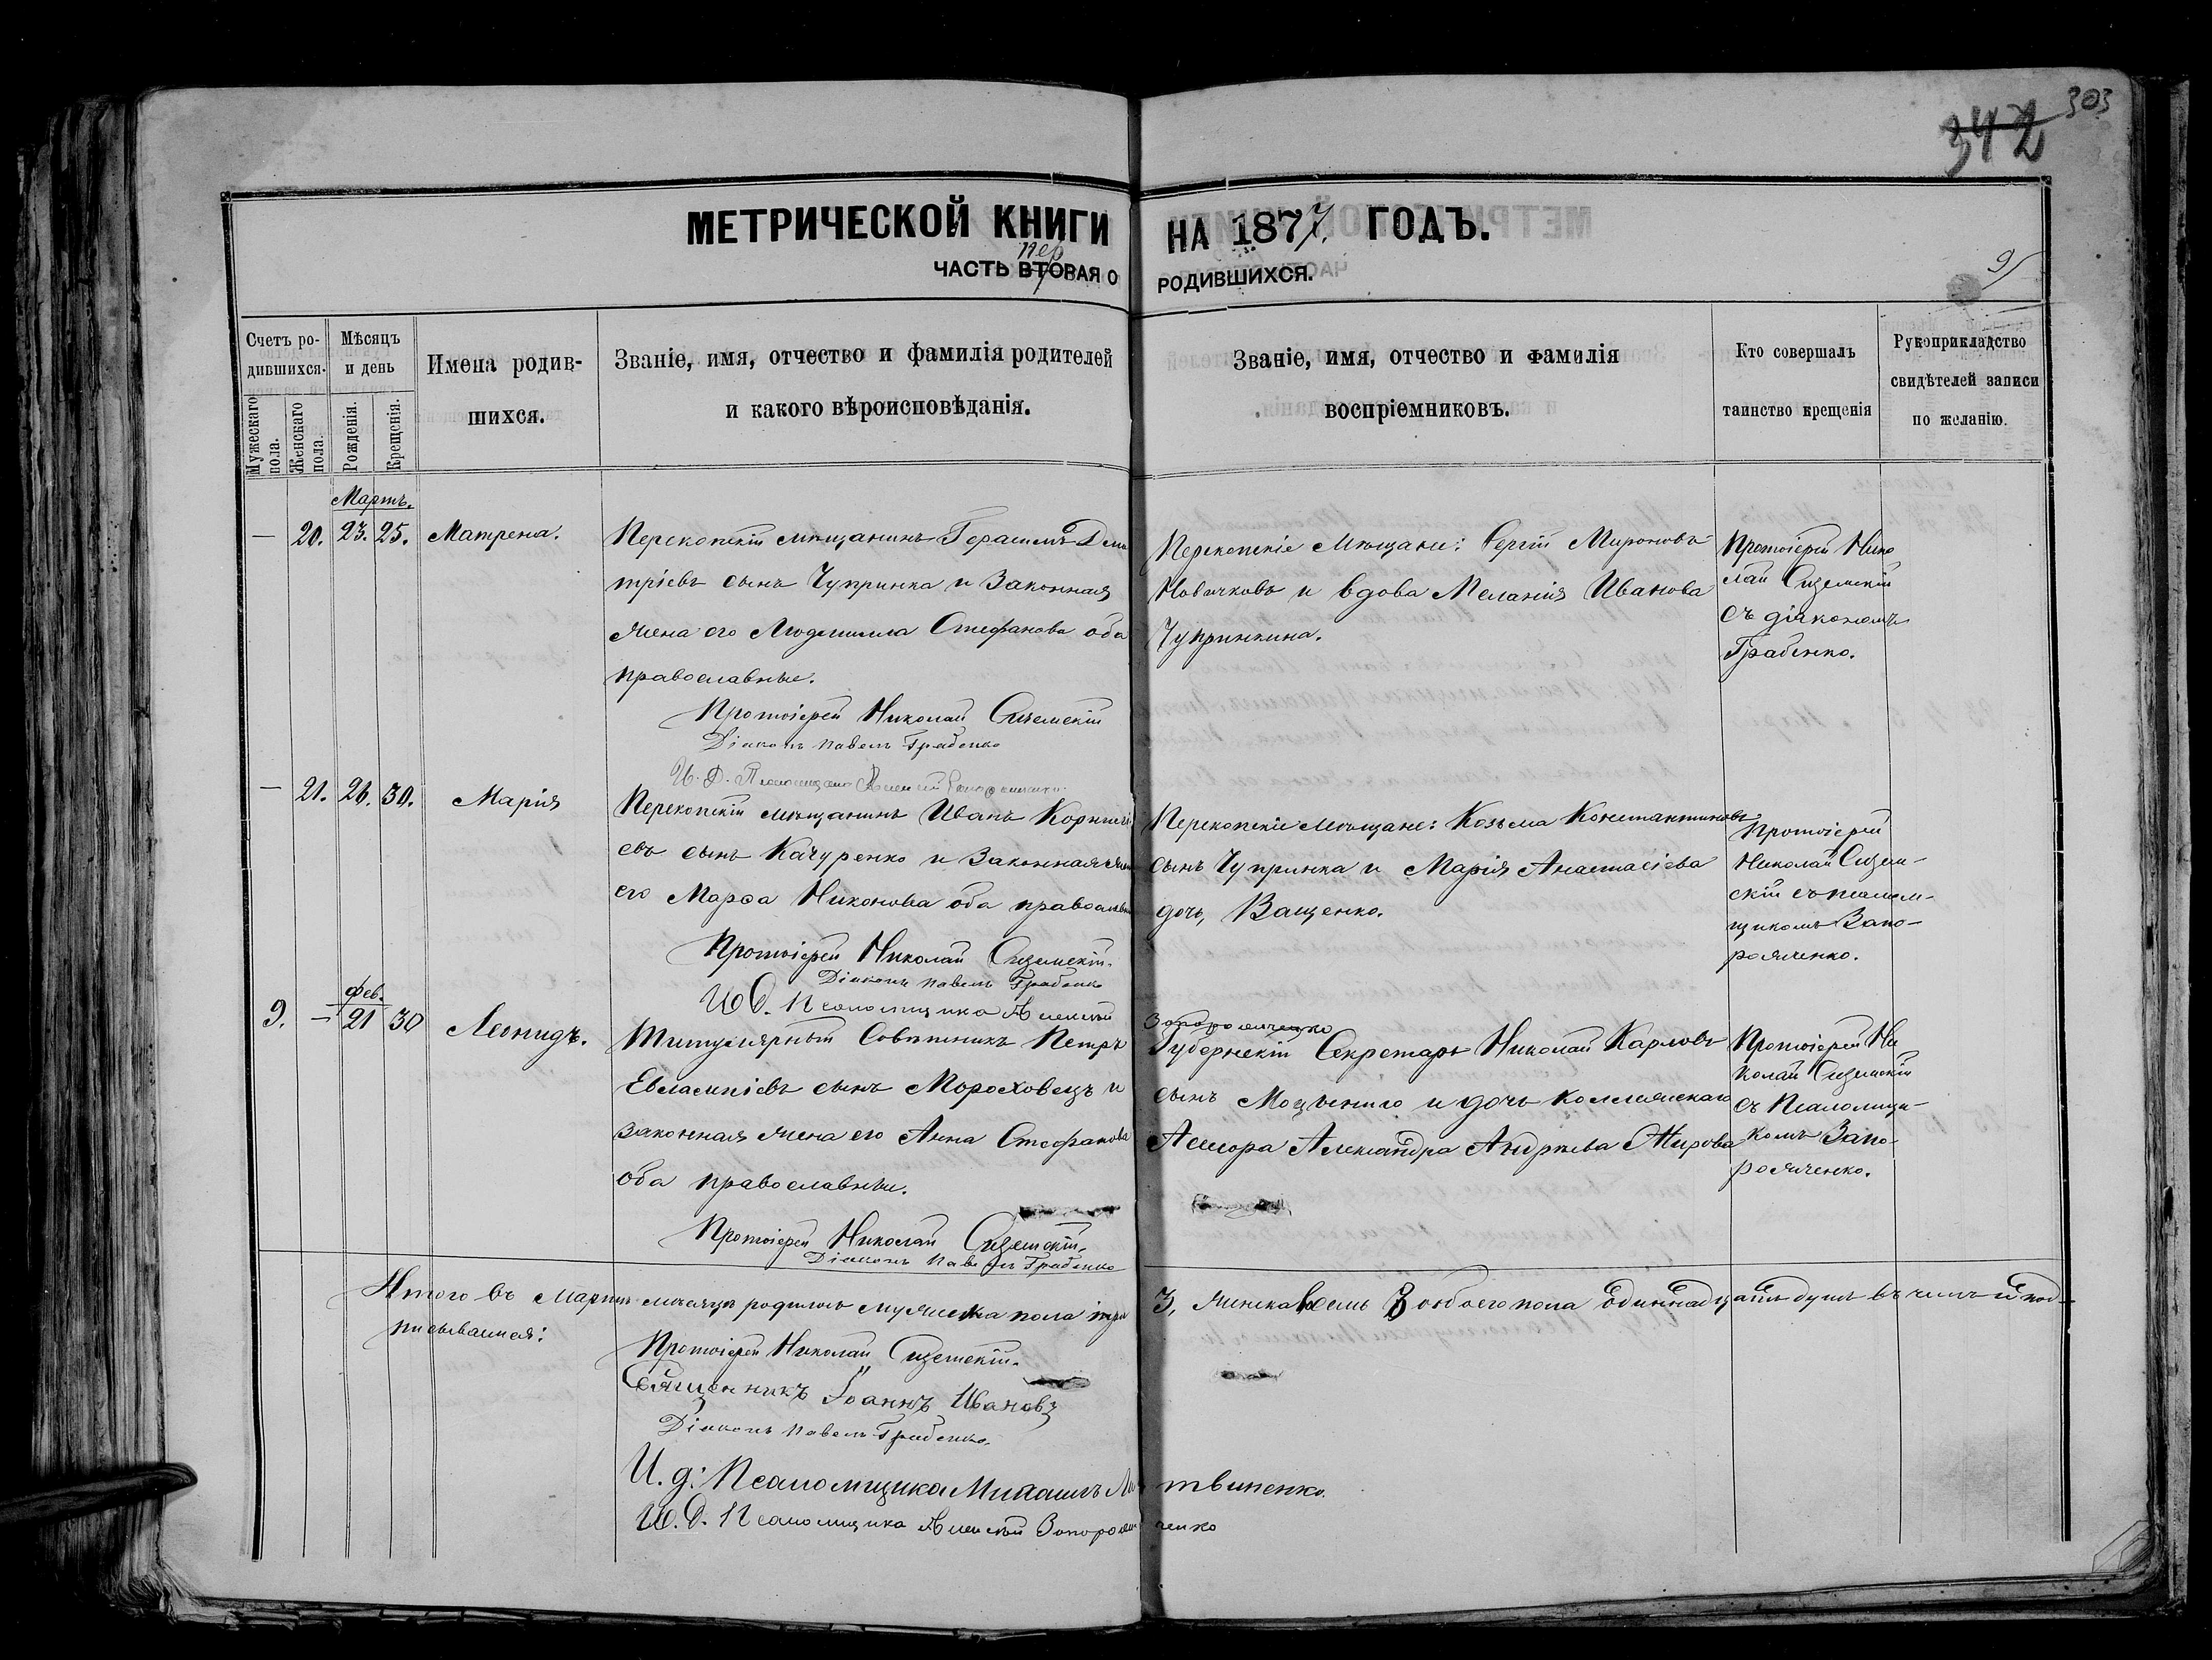 303
342
МЕТРИЧЕСКОЙ КНИГИ НА 1877 ГОДЪ.
пер
ЧАСТЬ ВТОРАЯ О РОДИВШИХСЯ.
9
Счетъ ро-
дившихся.
Мужескаго пола.
Женскаго пола.
Мѣсяцъ
и день
Рожденія.
Крещенія.
Имена родив-
шихся.
Званіе, имя, отчество и фамилія родителей
и какого вѣроисповѣданія.
Званіе, имя, отчество и фамилія
воспріемниковъ.
Кто совершалъ
таинство крещенія
Рукоприкладство
свидѣтелей записи
по желанію.
Мартъ.
— 20. 23. 25. Матрена.
Перекопскій мѣщанинъ Герасимъ Дми
тріевъ сынъ Чупринка и законная
жена его Людмилла Стефанова оба
православные.
Протоіерей Николай Сиземскій
Діаконъ Павелъ Грабенко
И. Д. Псаломщика Алексій Запорожченко
Перекопскіе мѣщане: Сергій Мироновъ
Новичковъ и вдова Меланія Иванова
Чупринкина.
Протоіерей Нико
лай Сиземскій
съ діакономъ
Грабенко.
— 21. 26. 30. Марія
Перекопскій мѣщанинъ Иванъ Корниліе
евъ сынъ Качуренко и законная жена
его Марѳа Никонова оба православные
Протоіерей Николай Сиземскій.
Діаконъ Павелъ Грабенко
И. Д. Псаломщика Алексій Запорожченко
Перекопскіе мѣщане: Козьма Константиновъ
сынъ Чупринка и Марія Анастасіева
дочь, Ващенко.
Протоіерей
Николай Сизем-
скій съ псалом-
щикомъ Запо-
рожченко.
Фев.
9. — 21 30 Леонидъ.
Титулярный Совѣтникъ Петръ
Евлампіевъ сынъ Мороховецъ и
законная жена его Анна Стефанова
оба православные.
Протоіерей Николай Сиземскій.
Діаконъ Павелъ Грабенко
Губернскій Секретарь Николай Карловъ
сынъ и дочь Коллежскаго
Ассесора Александра Андреева
Протоіерей Ни
колай Сиземскій
съ Псаломщи-
комъ Запо-
рожченко.
Итого въ Мартѣ мѣсяцѣ родилось мужеска пола три 3, женска восемь 8 обоего пола одиннадцать душъ въ чемъ и под-
писываемся:
Протоіерей Николай Сиземскій.
Священникъ Іоаннъ Ивановъ
Діаконъ Павелъ Грабенко.
И. д: Псаломщика Михаилъ Литвиненко.
И. Д. Псаломщика Алексій Запорожченко